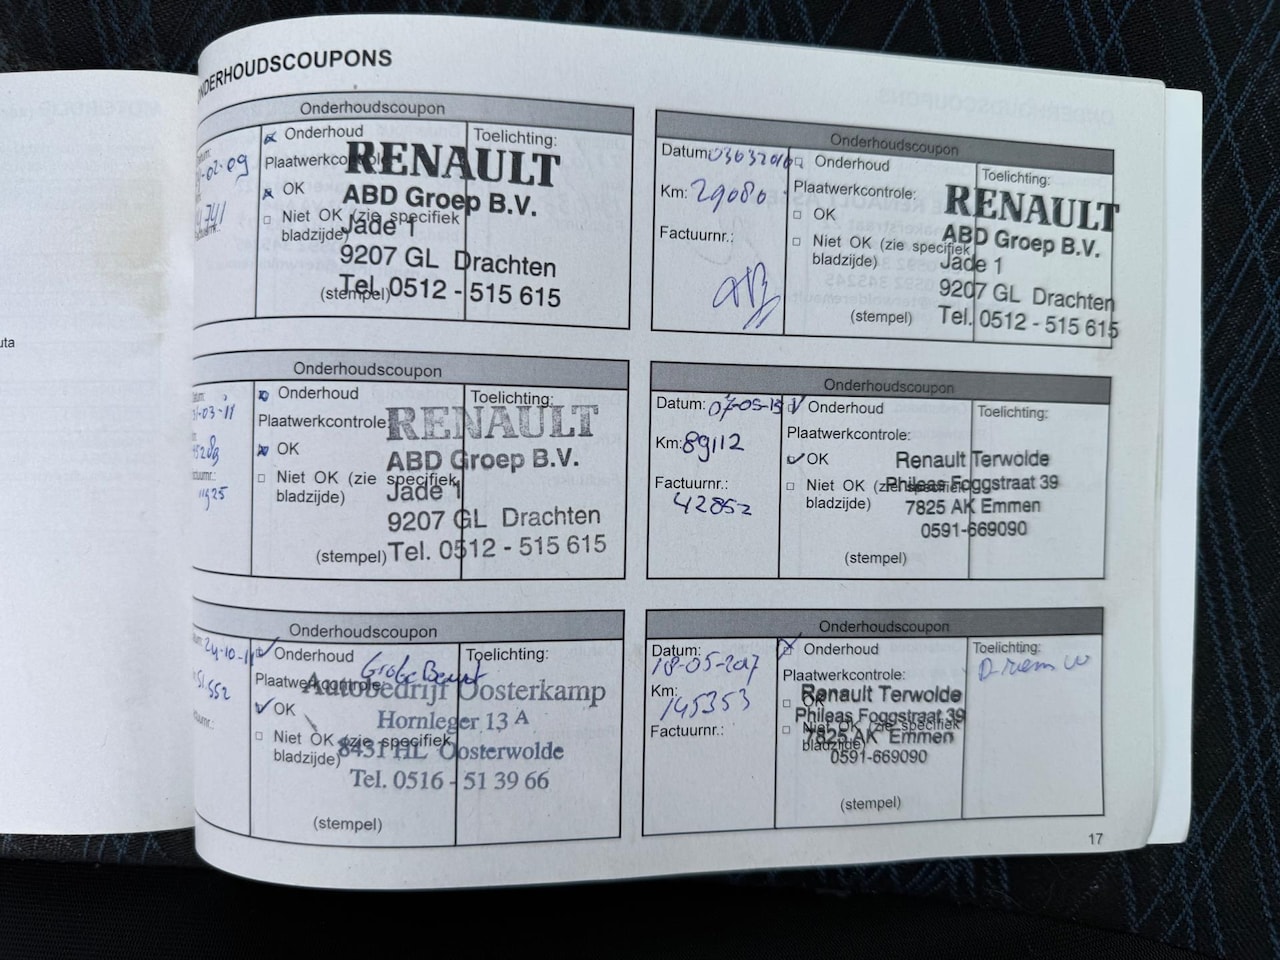 ONDERHOUDSCOUPONS
Onderhoudscoupon
Onderhoud
Toelichting:
-02-09
Plaatwerkcontrole
RENAULT
OK
ABD Groep B.V.
Niet OK (zie specifiek
bladzijde)
Jade 1
9207 GL Drachten
(stempel)
Tel. 0512 - 515 615
Onderhoudscoupon
Datum:
Onderhoud
Toelichting:
Km: 29080
Plaatwerkcontrole:
RENAULT
OK
ABD Groep B.V.
Factuurnr.:
Niet OK (zie specifiek
bladzijde)
Jade 1
9207 GL Drachten
(stempel)
Tel. 0512 - 515 615
Onderhoudscoupon
Onderhoud
Toelichting:
-03-11
Plaatwerkcontrole:
RENAULT
OK
ABD Groep B.V.
Niet OK (zie specifiek
bladzijde)
Jade 1
9207 GL Drachten
(stempel)
Tel. 0512 - 515 615
Onderhoudscoupon
Datum: 07-05-13
Onderhoud
Toelichting:
Km: 89112
Plaatwerkcontrole:
OK
Renault Terwolde
Factuurnr.:
42852
Niet OK (zie specifiek
bladzijde)
Phileas Foggstraat 39
7825 AK Emmen
0591-669090
(stempel)
Onderhoudscoupon
24-10-11
Onderhoud
Grote Beurt
Toelichting:
Plaatwerkcontrole:
Autobedrijf Oosterkamp
OK
Hornleger 13 A
Niet OK (zie specifiek
bladzijde)
8431 HL Oosterwolde
Tel. 0516 - 51 39 66
(stempel)
Onderhoudscoupon
Datum:
18-05-2017
Onderhoud
Toelichting:
Km:
145353
Plaatwerkcontrole:
OK
Renault Terwolde
Factuurnr.:
Niet OK (zie specifiek
bladzijde)
Phileas Foggstraat 39
7825 AK Emmen
0591-669090
(stempel)
17
uta